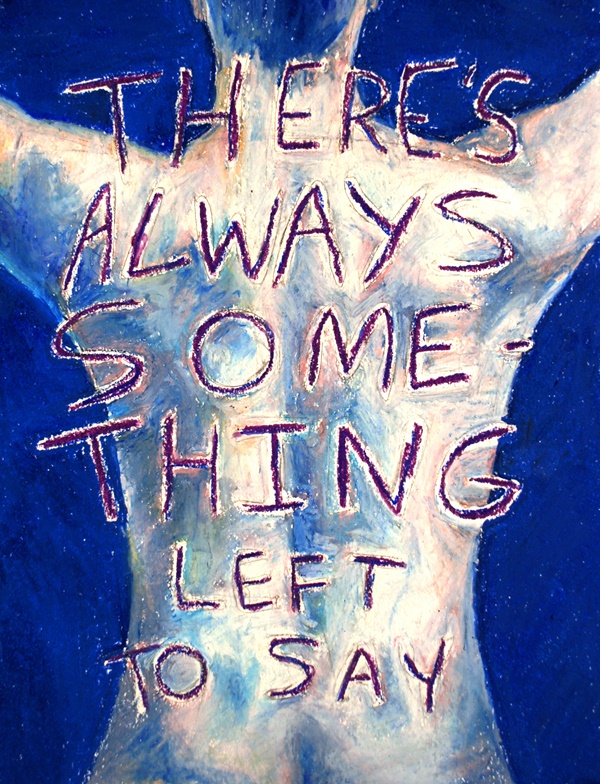 THERE'S
ALWAYS
SOME-
THING
LEFT
TO SAY